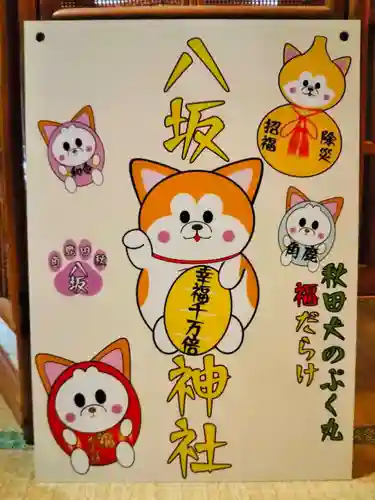 八坂
神社
幸福千万倍
招福
除災
角鹿
八坂
秋田犬のぶく丸
福だらけ